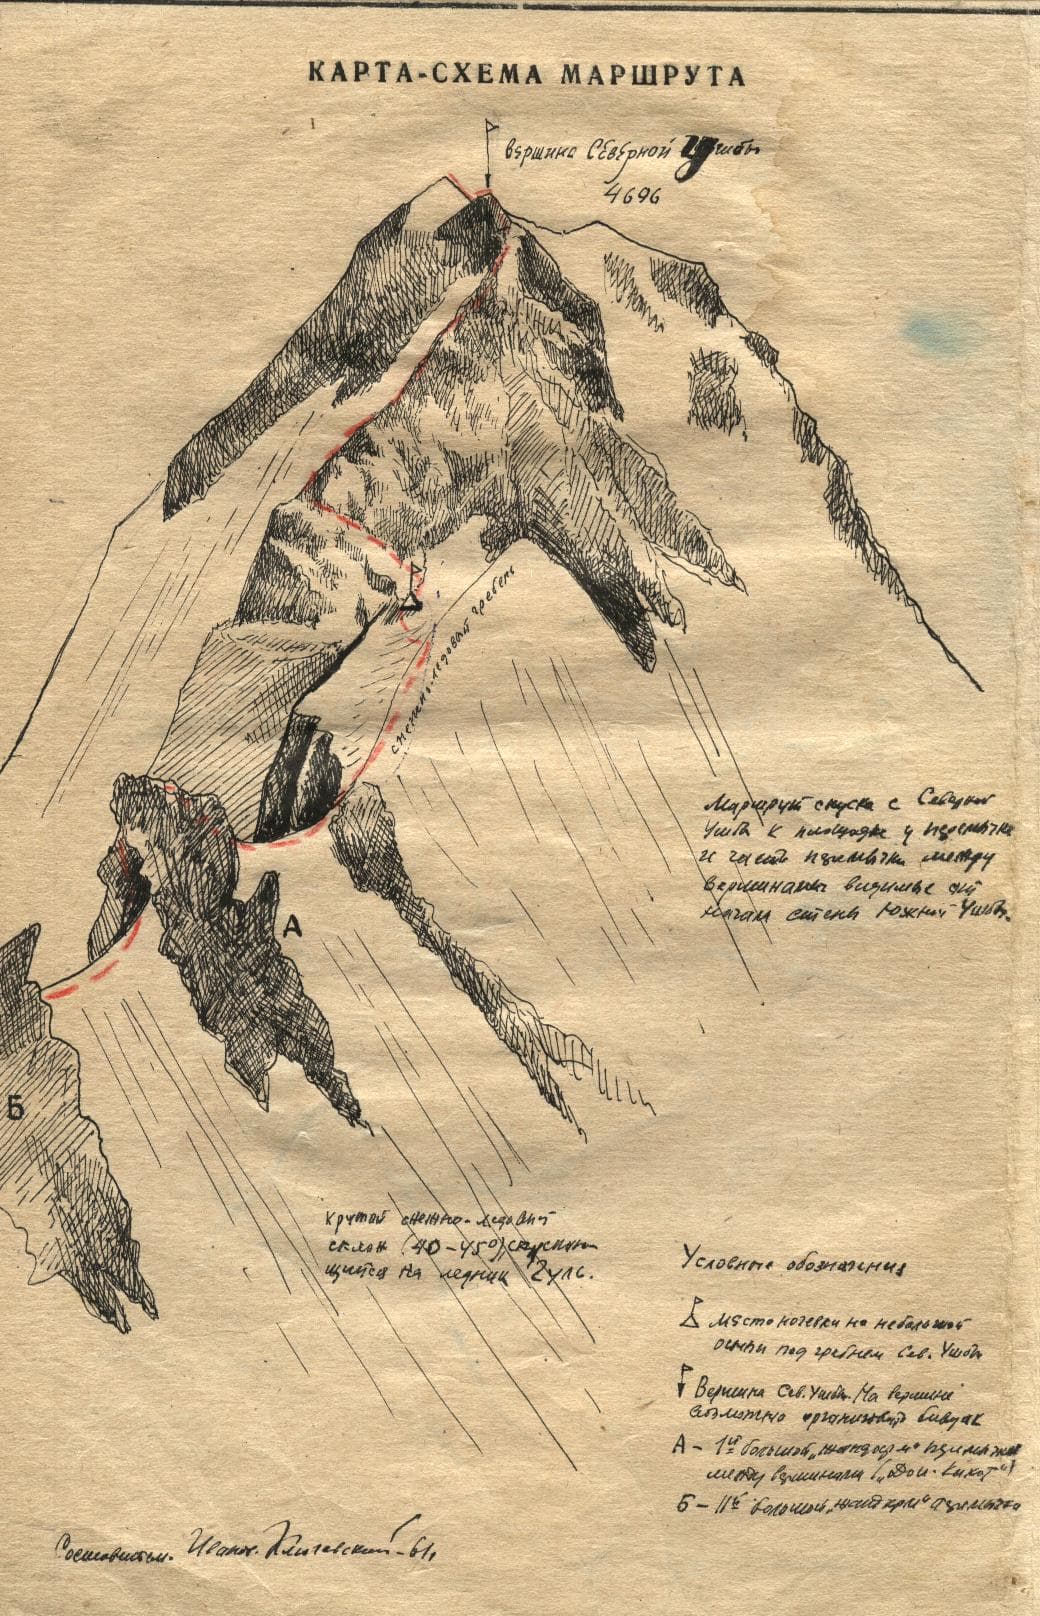 КАРТА-СХЕМА МАРШРУТА
вершина Северной Ушбы
4696
снежно-ледовый гребень
Маршрут спуска с Северной
Ушбы к площадке у перемычки
и часть перемычки между
вершинами видимые от
начала стены Южной Ушбы.
А
Б
крутой снежно-ледовый
склон (40-45°) спускаю-
щийся на ледник Гуль.
Условные обозначения
Место ночевки на небольшой
осыпи под гребнем Сев. Ушбы
Вершина Сев. Ушбы. На вершине
возможно организовать бивуак
А - 1й большой "жандарм" перемычки
между вершинами ("Дон-Кихот")
Б - IIй большой "жандарм" перемычки
Составитель. -61г